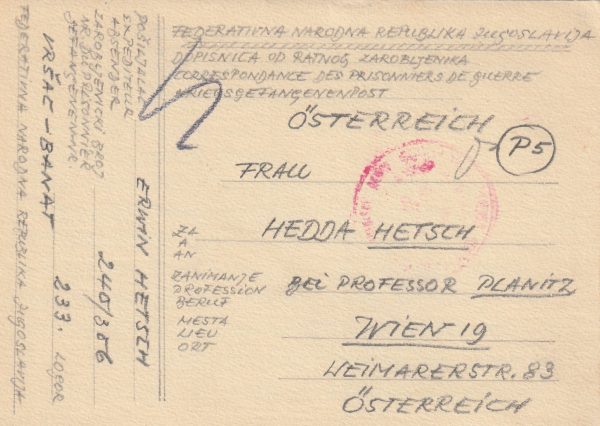 FEDERATIVNA NARODNA REPUBLIKA JUGOSLAVIJA
DOPISNICA OD RATNOG ZAROBLJENIKA
CORRESPONDANCE DES PRISONNIERS DE GUERRE
KRIEGSGEFANGENENPOST
ÖSTERREICH
P5
FRAU
ZA
A
AN
HEDDA HETSCH
ZANIMANJE
PROFESSION
BERUF
BEI PROFESSOR PLANITZ
MESTA
LIEU
ORT
WIEN 19
WEIMARERSTR. 83
ÖSTERREICH
POŠILJALAC
EXPEDITEUR
ABSENDER
ERWIN HETSCH
ZAROBLJENIČKI BROJ
NR DU PRISONNIER
GEFANGENENNR.
240/356
VRŠAC - BANAT 233. LOGOR
FEDERATIVNA NARODNA REPUBLIKA JUGOSLAVIJA